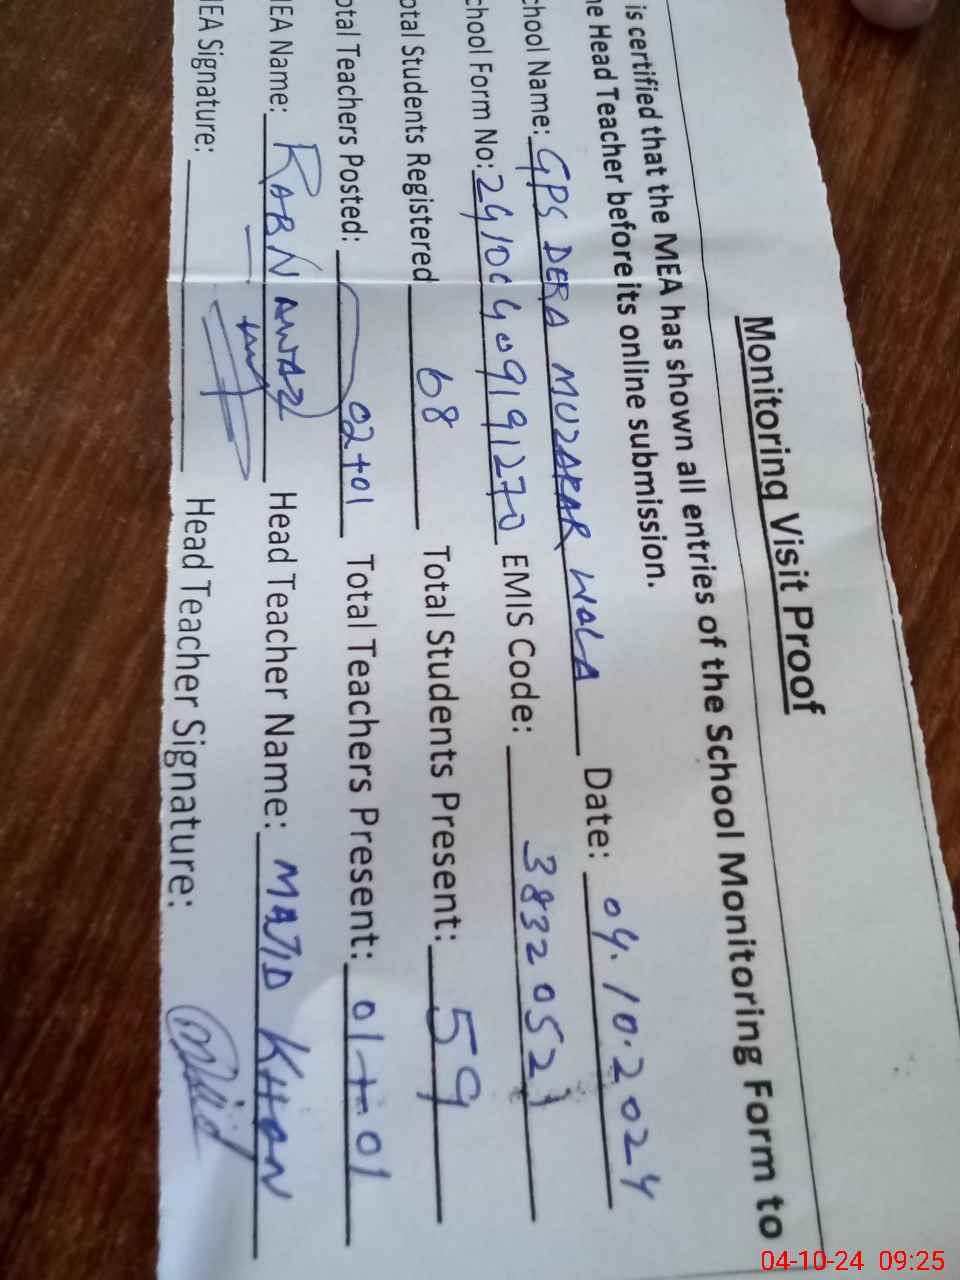 Monitoring Visit Proof
is certified that the MEA has shown all entries of the School Monitoring Form to
he Head Teacher before its online submission.
chool Name: GPS DERA MUZAKAR WALA Date: 04.10.2024
chool Form No: EMIS Code: 38320521
otal Students Registered 68 Total Students Present: 59
otal Teachers Posted: 02+01 Total Teachers Present: 01+01
MEA Name: RABNAWAZ Head Teacher Name: MAJID KHAN
MEA Signature: Head Teacher Signature:
04-10-24 09:25